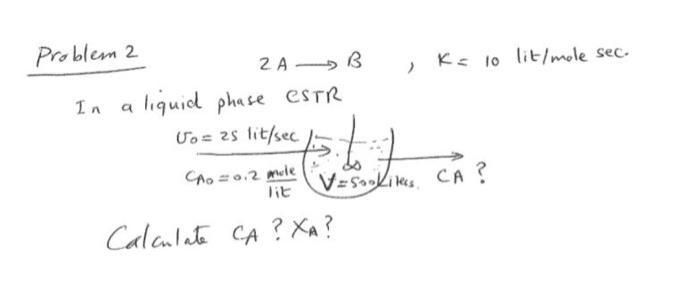 Problem 2
2A ⟶ B , K = 10 lit/mole sec.
In a liquid phase CSTR
υo = 25 lit/sec
CAo = 0.2 mole/lit V = 500 Liters. CA ?
Calculate CA ? XA ?